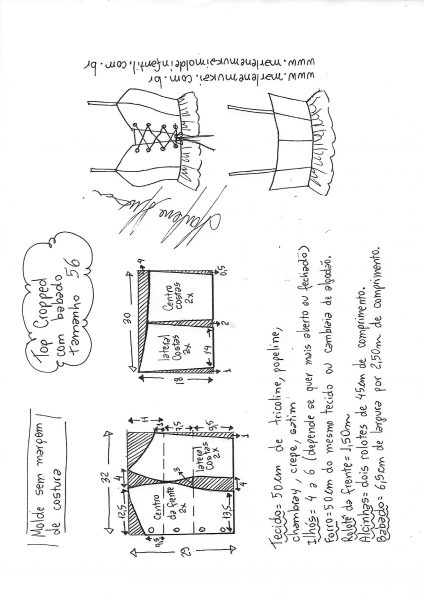 Molde sem margem
de costura
Top Cropped
com babado
tamanho 56
www.marlenemukai.com.br
www.marlenemukaimoldeinfantil.com.br
32
12,5
4
11
3
7,5
9,5
1
3
Centro
da frente
2x
lateral
Costas
2x
29
13,5
4
30
4
lateral
Costas
2x
Centro
costas
2x
18
14
1
2
0,5
Tecido= 50cm de tricoline, popeline,
chambray, crepe, cetim
Ilhós= 4 a 6 (depende se quer mais aberto ou fechado)
Forro=50cm do mesmo tecido ou cambraia de algodão.
Rolotê da frente= 1,50m
Alcinhas= dois rolotes de 45cm de comprimento.
Babado= 6,5cm de largura por 2,50m de comprimento.